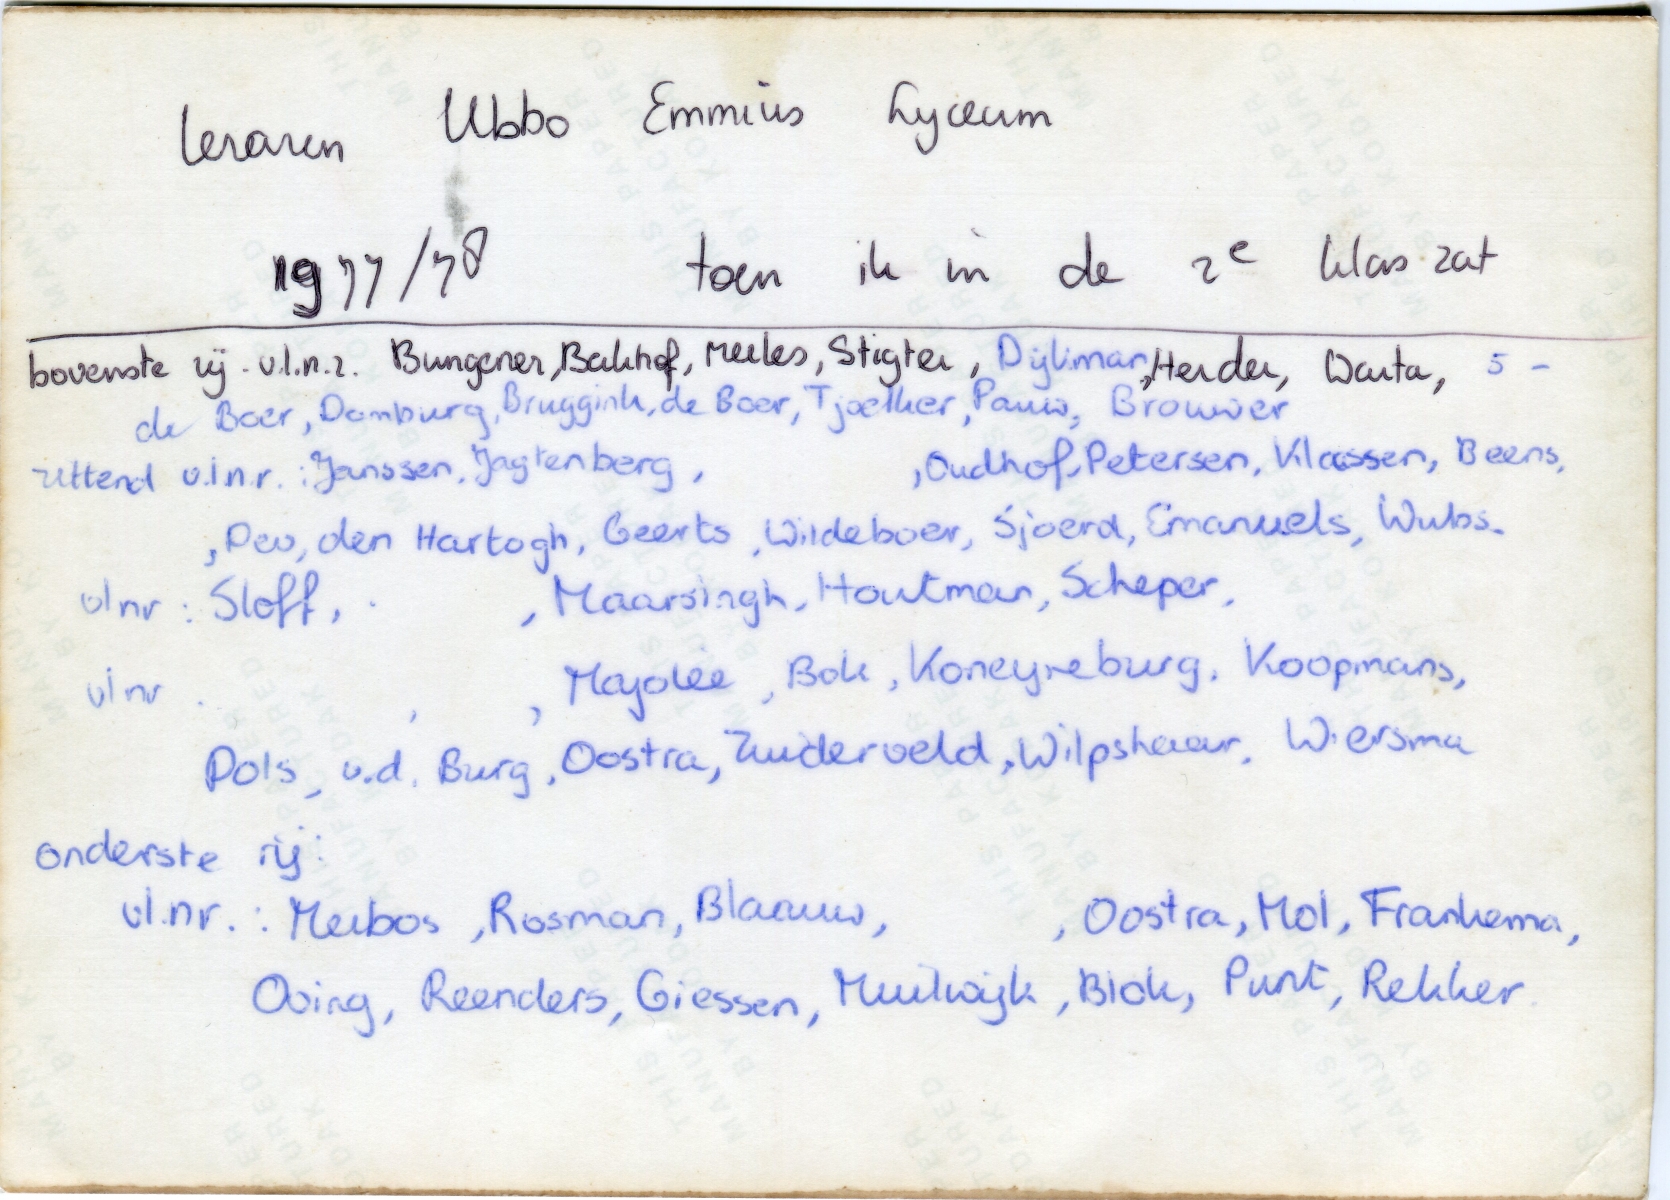 leraren Ubbo Emmius Lyceum
1977/78 toen ik in de 2e klas zat
bovenste rij. v.l.n.r. Bungener, Bakhof, Meiles, Stigter, Dijkman, Herder, Warta, 5 -
de Boer, Domburg, Bruggink, de Boer, Tjoelker, Pauw, Brouwer
zittend v.l.n.r. : Janssen, Jagtenberg, , Oudhof, Petersen, Klaassen, Beens,
, Pev, den Hartogh, Geerts, Wildeboer, Sjoerd, Emanuels, Wubs.
vlnr : Sloff, . , Maarsingh, Houtman, Scheper,
vlnr . , , Majolée, Bok, Koneyneburg, Koopmans,
Pols, v.d. Burg, Oostra, Zuiderveld, Wilpshaar, Wiersma
onderste rij:
vl.nr. : Meibos, Rosman, Blaauw, , Oostra, Mol, Frankema,
Oving, Reenders, Giessen, Muilwijk, Blok, Punt, Rekker.
THIS PAPER MANUFACTURED BY KODAK